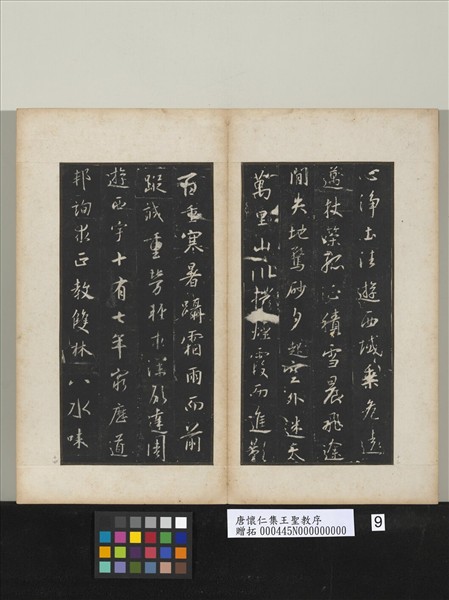 心淨土法遊西域乘危遠
邁杖策孤征積雪晨飛途
閒失地驚砂夕起空外迷天
萬里山川撥煙霞而進影
百重寒暑躡霜雨而前
蹤誠重勞輕求深願達周
遊西宇十有七年窮歷道
邦詢求正教雙林八水味
唐懷仁集王聖教序
贈拓 000445N000000000
9